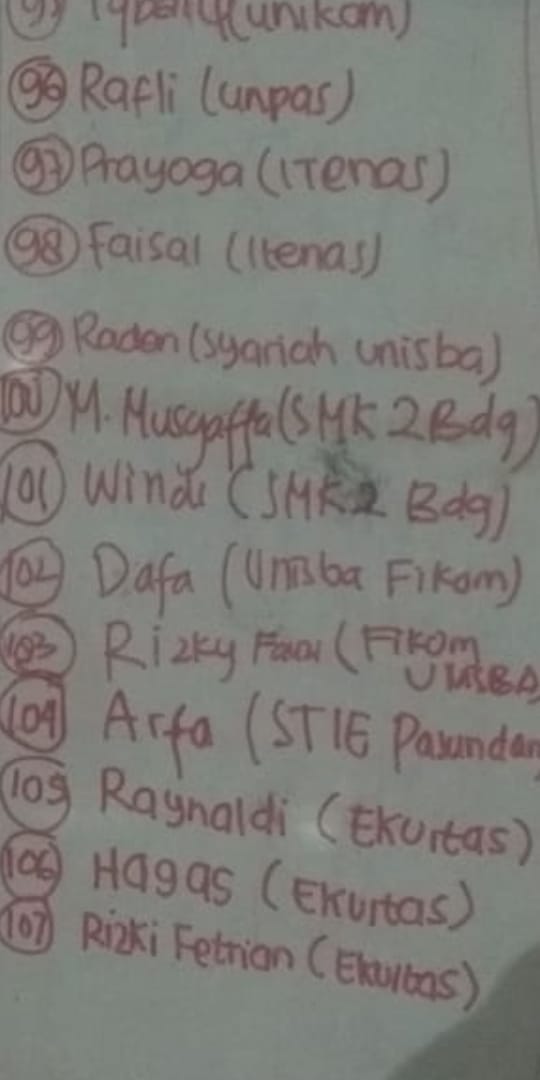 (unikom)
96 Rafli (unpas)
97 Prayoga (ITenas)
98 Faisal (Itenas)
99 Raden (syariah unisba)
100 M. Musyaffa (SMK 2 Bdg)
101 Windi (SMK 2 Bdg)
102 Dafa (Unisba Fikom)
103 Rizky (FIKOM
UNISBA
104 Arfa (STIE Pasundan
105 Raynaldi (Ekuitas)
106 Hagas (Ekuitas)
107 Rizki Fetrian (Ekuitas)